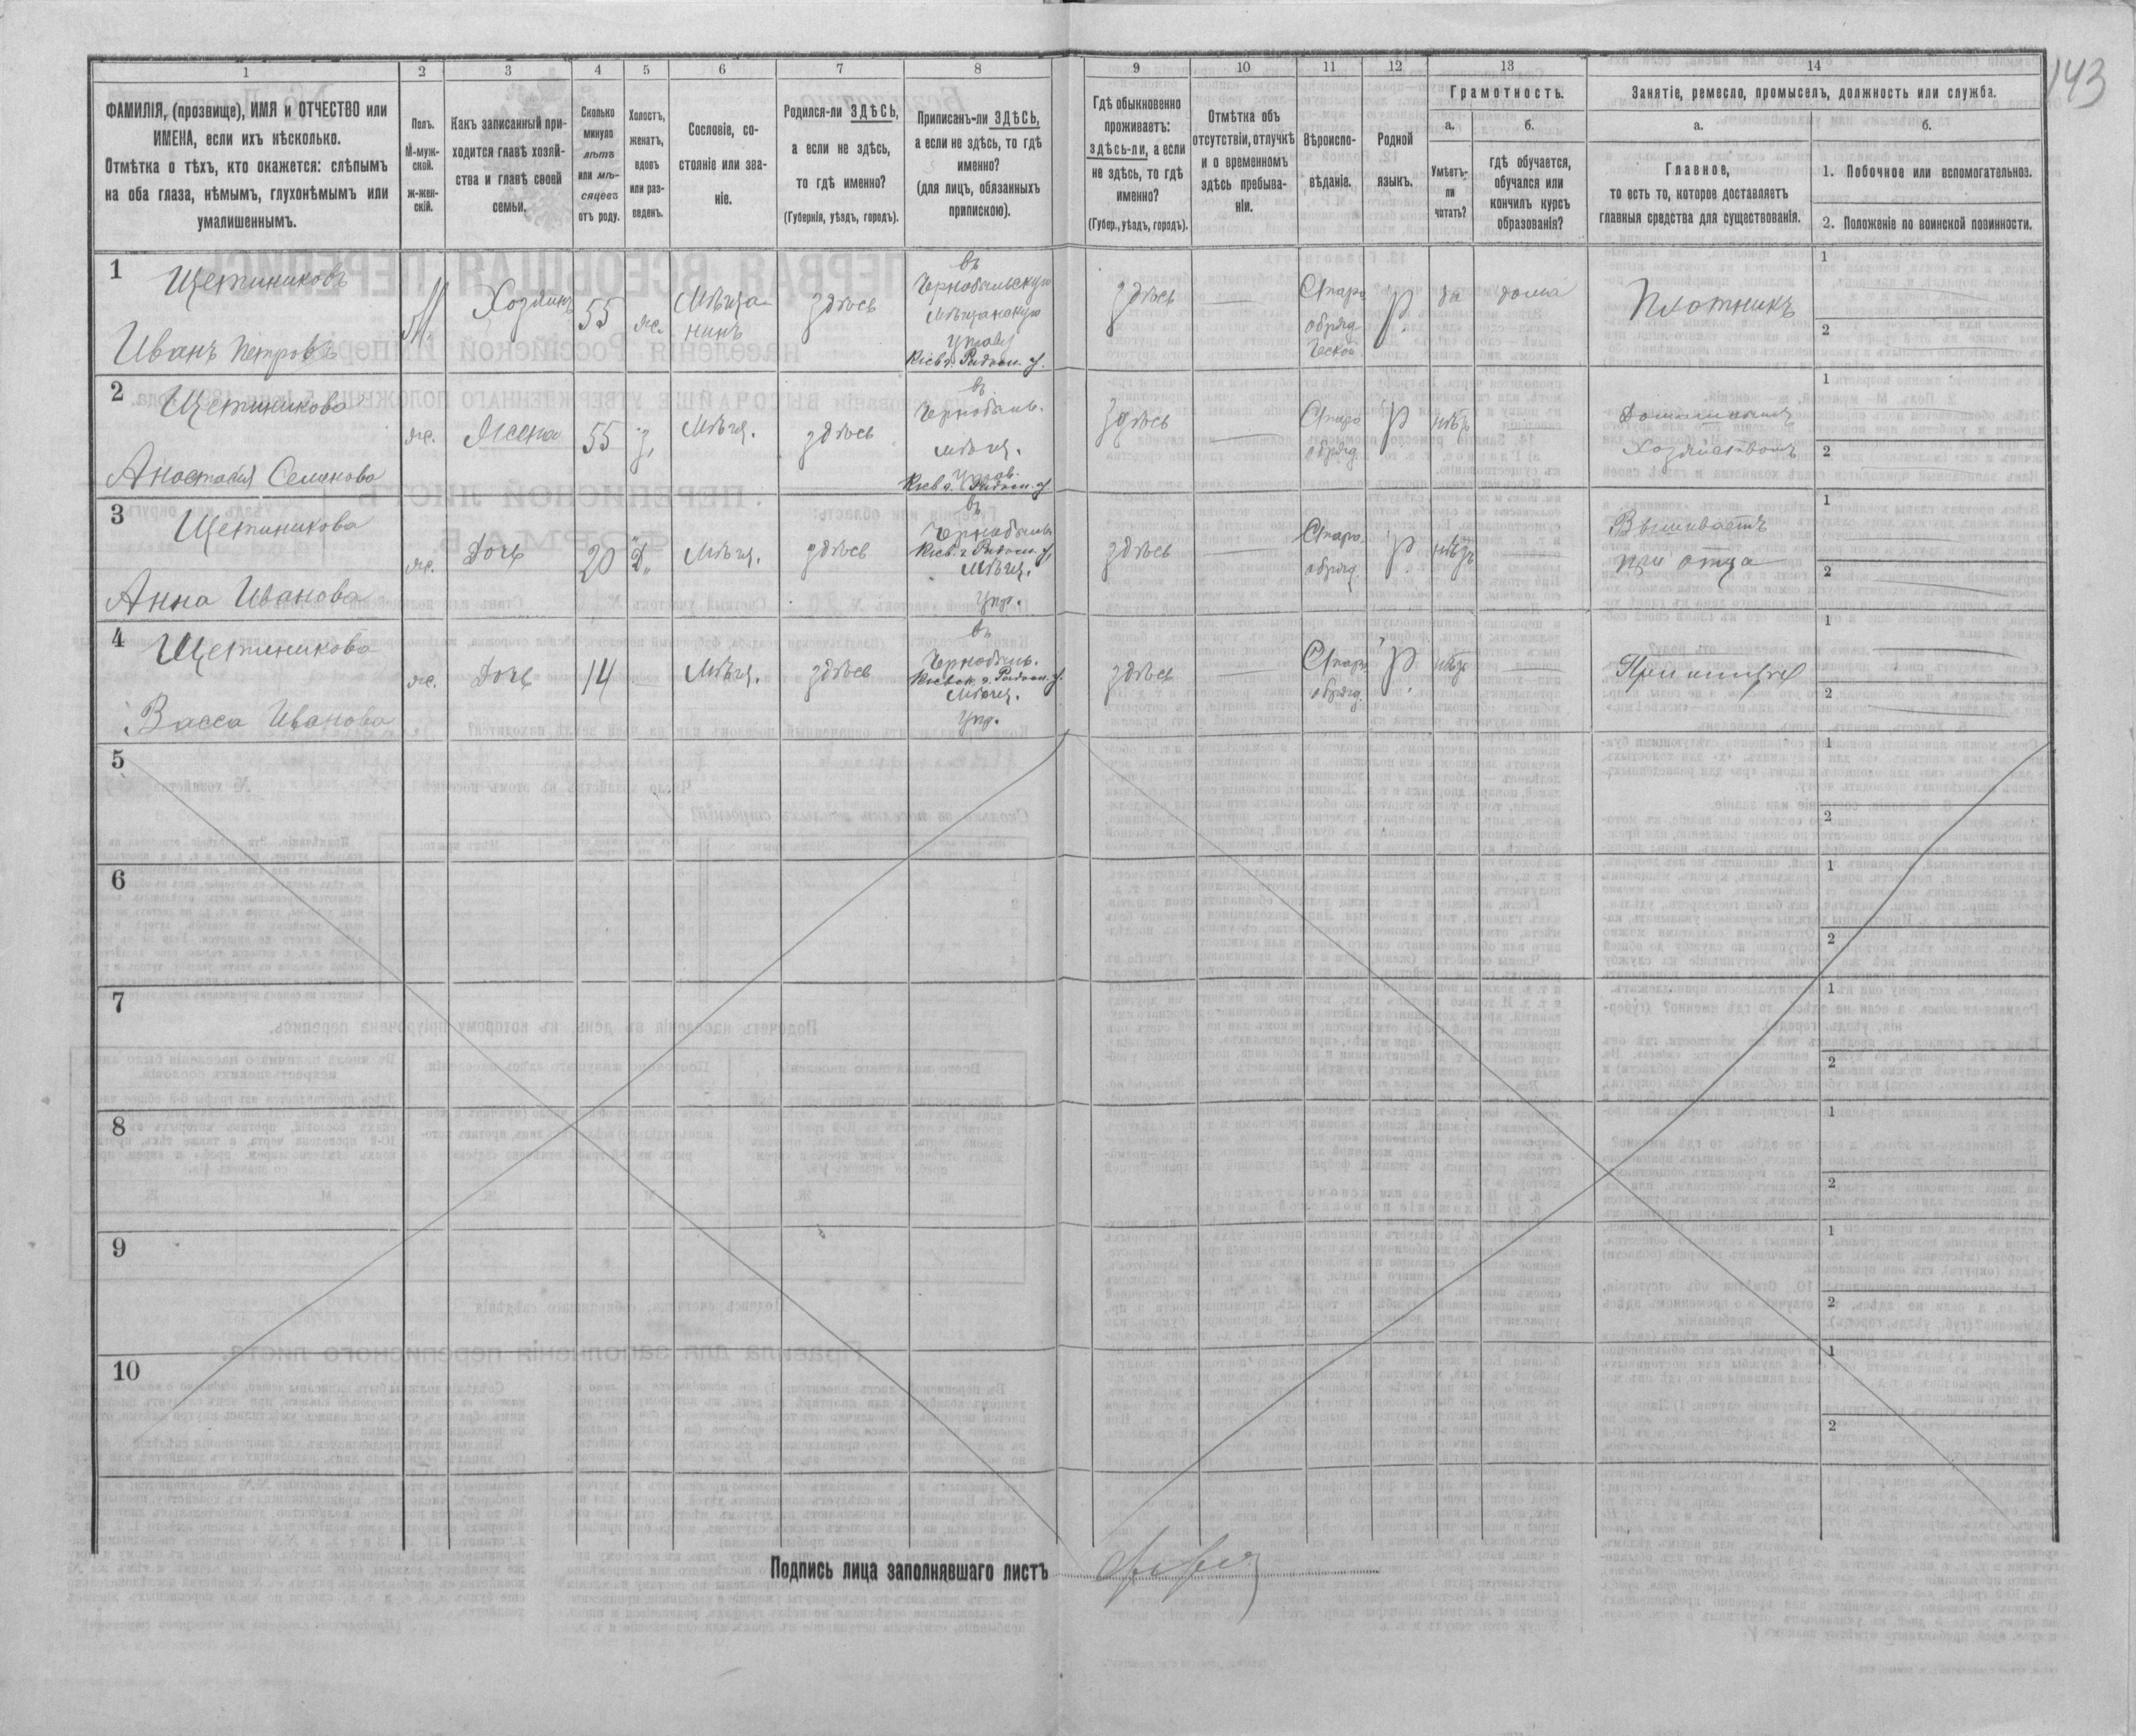 143
1 2 3 4 5 6 7 8 9 10 11 12 13 14
ФАМИЛІЯ, (прозвище), ИМЯ и ОТЧЕСТВО или
ИМЕНА, если ихъ нѣсколько.
Отмѣтка о тѣхъ, кто окажется: слѣпымъ
на оба глаза, нѣмымъ, глухонѣмымъ или
умалишеннымъ.
Полъ.
М-муж-
ской.
ж-жен-
скій.
Какъ записанный при-
ходится главѣ хозяй-
ства и главѣ своей
семьи.
Сколько
минуло
лѣтъ
или мѣ-
сяцевъ
отъ роду.
Холостъ,
женатъ,
вдовъ
или раз-
веденъ.
Сословіе, со-
стояніе или зва-
ніе.
Родился-ли ЗДѢСЬ,
а если не здѣсь,
то гдѣ именно?
(Губернія, уѣздъ, городъ).
Приписанъ-ли ЗДѢСЬ,
а если не здѣсь, то гдѣ
именно?
(для лицъ, обязанныхъ
припискою).
Гдѣ обыкновенно
проживаетъ:
здѣсь-ли, а если
не здѣсь, то гдѣ
именно?
(Губер., уѣздъ, городъ).
Отмѣтка объ
отсутствіи, отлучкѣ
и о временномъ
здѣсь пребыва-
ніи.
Вѣроиспо-
вѣданіе.
Родной
языкъ.
Грамотность.
а.
Умѣетъ-
ли
читать?
б.
гдѣ обучается,
обучался или
кончилъ курсъ
образованія?
Занятіе, ремесло, промыселъ, должность или служба.
а.
Главное,
то есть то, которое доставляетъ
главныя средства для существованія.
б.
1. Побочное или вспомогательноз.
2. Положеніе по воинской повинности.
1
Щетиниковъ
Иванъ Петровъ
М.
Хозяинъ
55
ж.
Мѣща-
нинъ
здѣсь
въ
Чернобыльскую
мѣщанскую
управу
Кіев. г. Радом. у.
здѣсь
—
Старо
обряд
ческой
р.
да
дома
Плотникъ
1
2
2
Щетиникова
Анастасія Семенова
ж.
Жена
55
з.
Мѣщ.
здѣсь
въ
Чернобыль.
мѣщ.
управ.
Кіев г. Радом. у
здѣсь
—
Старо
обряд.
р
нѣтъ
Домашнимъ
Хозяйствомъ
1
2
3
Щетиникова
Анна Иванова
ж.
Дочь
20
Д.
Мѣщ.
здѣсь
въ
Чернобыль
Кіев. г. Радом. у.
мѣщ.
упр.
здѣсь
—
Старо
обряд.
р.
нѣтъ
—
Вышиваетъ
при отца
1
2
4
Щетиникова
Васса Иванова
ж.
Дочь
14
—
Мѣщ.
здѣсь
въ
Чернобыль.
Кіевск. г. Радом. у.
мѣщ.
упр.
здѣсь
—
Старо
обряд.
р.
нѣтъ
—
При отцѣ
1
2
5
1
2
6
1
2
7
1
2
8
1
2
9
1
2
10
1
2
Подпись лица заполнявшаго листъ